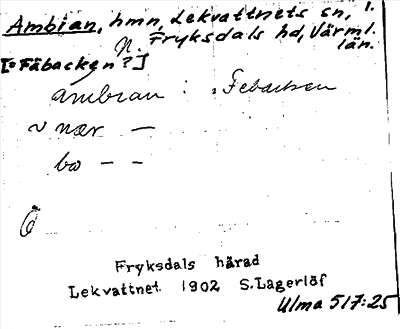 Ambian, hmn, Lekvattnets sn, 1.
N. Fryksdals hd, Värml.
län.
[= Fäbacken?]
ambian : Febacken
v nær —
bo — —
Fryksdals härad
Lekvattnet 1902 S.Lagerlöf
Ulma 517:25